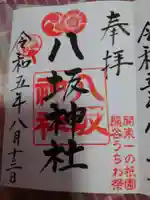 奉拝
関東一の祇園
熊谷うちわ祭
八坂神社
八坂神社
令和五年八月十三日